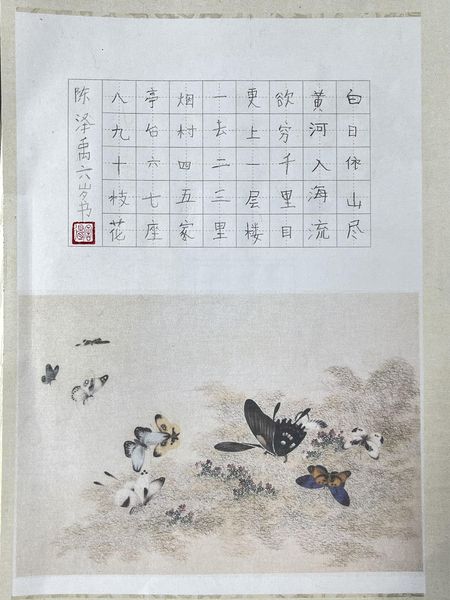 白日依山尽
黄河入海流
欲穷千里目
更上一层楼
一去二三里
烟村四五家
亭台六七座
八九十枝花
陈泽禹六岁书